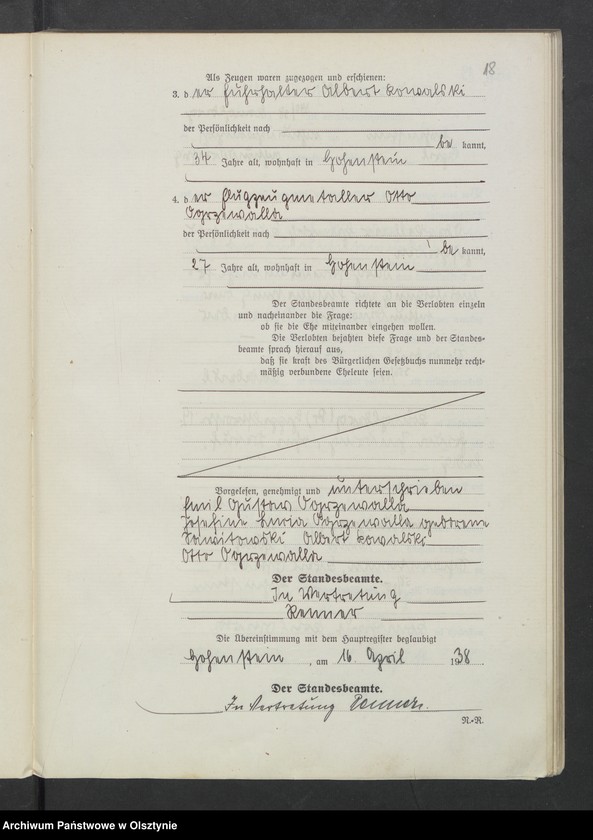 18
Als Zeugen waren zugezogen und erschienen:
3. der Fuhrhalter Albert Kowalski
der Persönlichkeit nach
be kannt,
34 Jahre alt, wohnhaft in Hohenstein
4. der Flugzeugmetaller Otto
Ogrzewalla
der Persönlichkeit nach
be kannt,
27 Jahre alt, wohnhaft in Hohenstein
Der Standesbeamte richtete an die Verlobten einzeln
und nacheinander die Frage:
ob sie die Ehe miteinander eingehen wollen.
Die Verlobten bejahten diese Frage und der Standes-
beamte sprach hierauf aus,
daß sie kraft des Bürgerlichen Gesetzbuchs nunmehr recht-
mäßig verbundene Eheleute seien.
Vorgelesen, genehmigt und unterschrieben
Emil Gustav Ogrzewalla
Josefine Maria Ogrzewalla geborene
Sawitowski Albert Kowalski
Otto Ogrzewalla
Der Standesbeamte.
In Vertretung
Renner
Die Übereinstimmung mit dem Hauptregister beglaubigt
Hohenstein, am 16. April 1938.
Der Standesbeamte.
In Vertretung Renner.
N.-R.
Archiwum Państwowe w Olsztynie